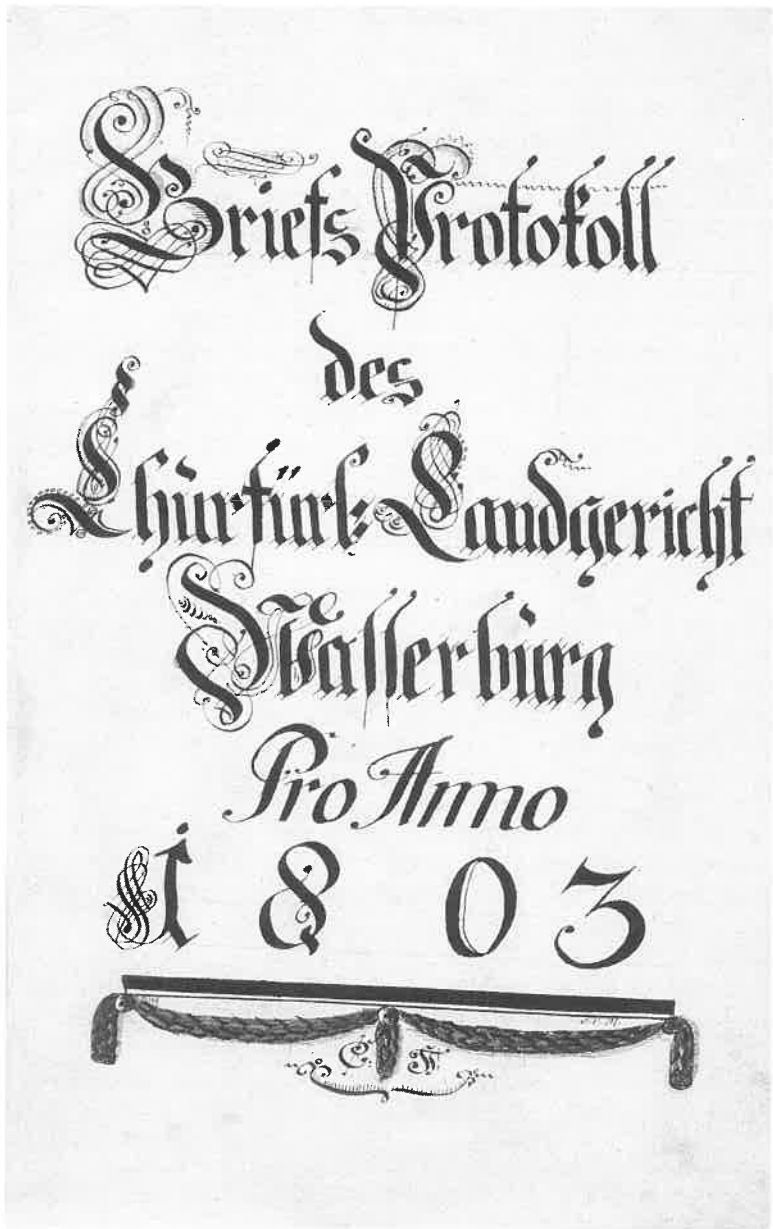 Briefs Protokoll
des
Chürfürl: Landgericht
Wasserbürg
Pro Anno
1803
C F